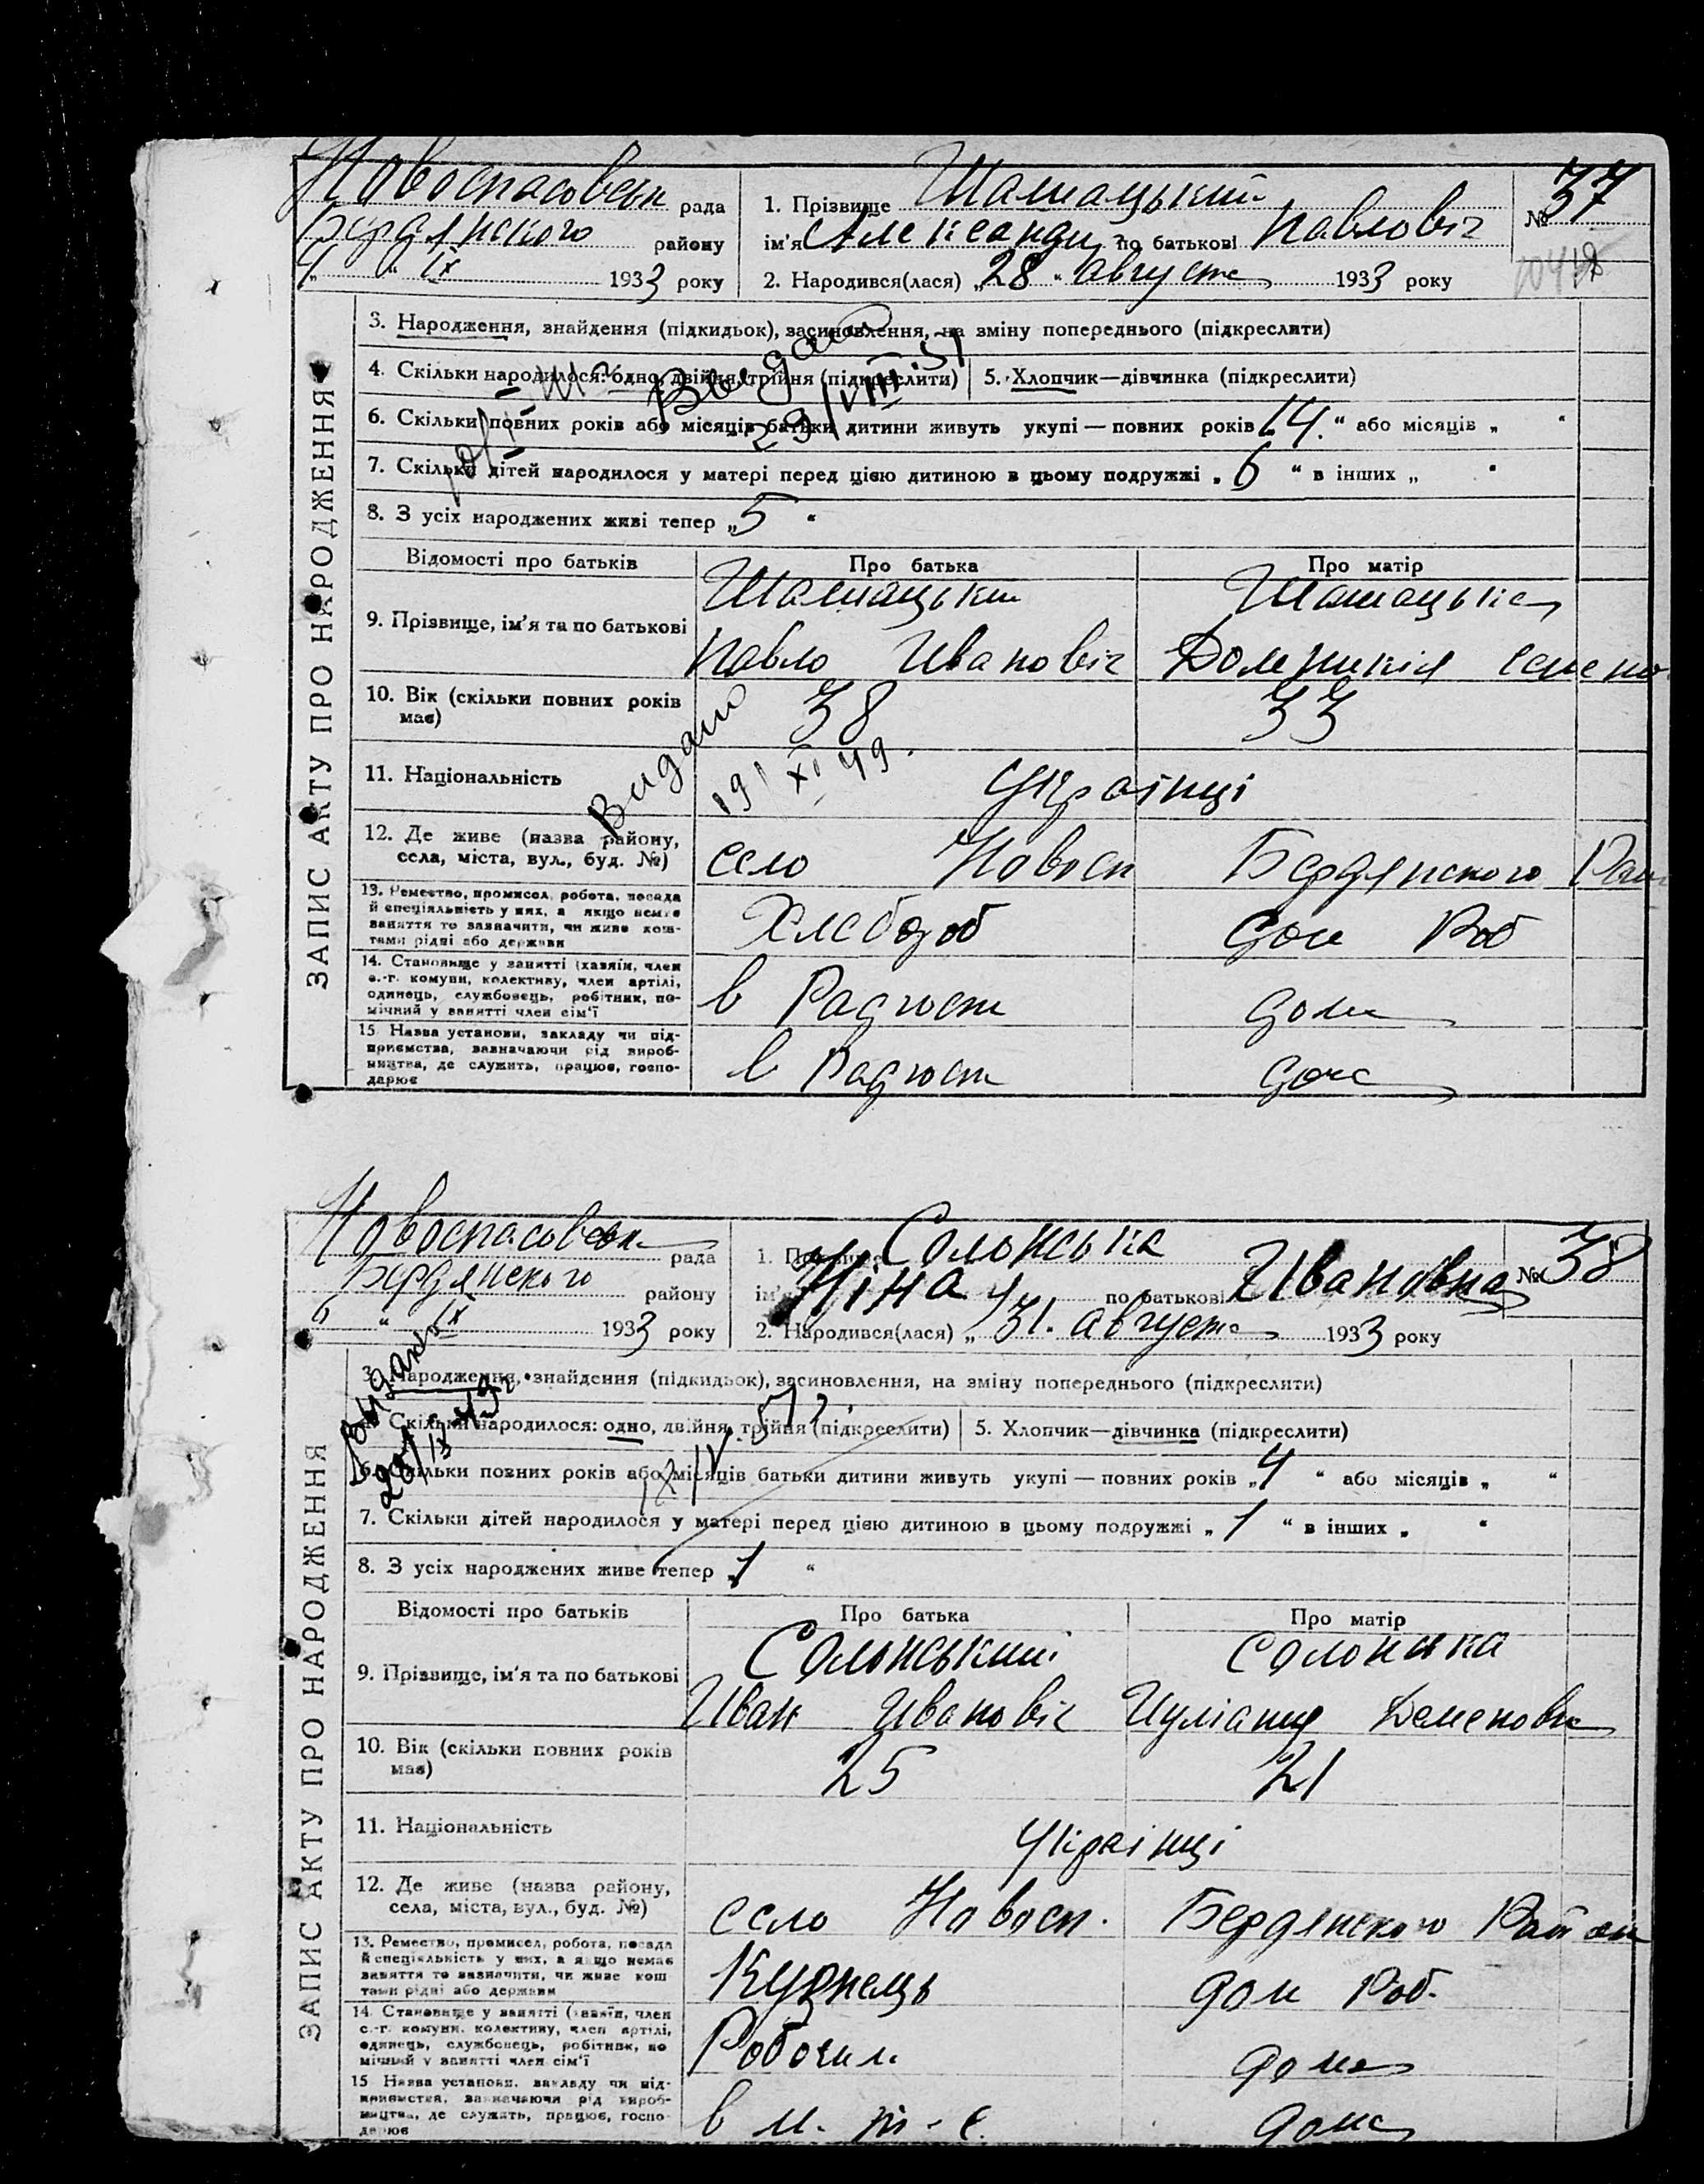 Новоспасовськ рада
Бердянского району
" IX 1933 року
1. Прізвище Шамацький
ім'я Александр по батькові Павловіч
2. Народився(лася) „28 " августа 1933 року
№ 37
ЗАПИС АКТУ ПРО НАРОДЖЕННЯ
3. Народження, знайдення (підкидьок), засиновлення, на зміну попереднього (підкреслити)
4. Скільки народилося: одно, двійня, трійня (підкреслити) 5. Хлопчик—дівчинка (підкреслити)
6. Скільки повних років або місяців батьки дитини живуть укупі — повних років „14 " або місяців „ "
7. Скільки дітей народилося у матері перед цією дитиною в цьому подружжі „6 " в інших „ "
8. З усіх народжених живі тепер „5 "
29/VIII 51
Відомості про батьків Про батька Про матір
9. Прізвище, ім'я та по батькові
Шамацький Шамацька
Павло Ивановіч Семено
10. Вік (скільки повних років має) 38 33
Видано 19/XI 49.
11. Національність Українці
12. Де живе (назва району, села, міста, вул., буд. №) село Новосп Бердянского Рай
13. Ремество, промисел, робота, посада
й спеціяльність у них, а якщо немає
заняття то зазначити, чи живе кош-
тами рідні або держави
Хлебороб дом Роб
14. Становище у занятті (хазяїн, член
с.-г. комуни, колективу, член артілі,
одинець, службовець, робітник, по-
мічний у занятті член сім'ї
в Радгосп дома
15 Назва установи, закладу чи під-
приємства, зазначаючи рід вироб-
ництва, де служить, працює, госпо-
дарює
в Радгосп дома
Новоспасовськ рада
Бердянского району
6 " IX 1933 року
1. Прізвище Солонська
Ніна по батькові Ивановна
2. Народився(лася) „ 31. августа 1933 року
№ 38
ЗАПИС АКТУ ПРО НАРОДЖЕННЯ
3. Народження, знайдення (підкидьок), засиновлення, на зміну попереднього (підкреслити)
Видано
4. Скільки народилося: одно, двійня, трійня (підкреслити) 5. Хлопчик—дівчинка (підкреслити)
6. Скільки повних років або місяців батьки дитини живуть укупі — повних років „4 " або місяців „ "
7. Скільки дітей народилося у матері перед цією дитиною в цьому подружжі „ 1 " в інших „ "
8. З усіх народжених живе тепер „1 "
Відомості про батьків Про батька Про матір
9. Прізвище, ім'я та по батькові
Солонський Солонська
Иван Ивановіч Иуліания Семеновна
10. Вік (скільки повних років має) 25 21
11. Національність Українці
12. Де живе (назва району, села, міста, вул., буд. №) село Новосп. Бердянского Район
13. Ремество, промисел, робота, посада
й спеціяльність у них, а якщо немає
заняття то зазначити, чи живе кош
тами рідні або держави
Кузнець дом Роб.
14. Становище у занятті (хазяїн, член
с.-г. комуни, колективу, член артілі,
одинець, службовець, робітник, по
мічний у занятті член сім'ї
Робочий дома
15 Назва установи, закладу чи під-
приємства, зазначаючи рід вироб-
ництва, де служить, працює, госпо-
дарює
в м. т. с. дома